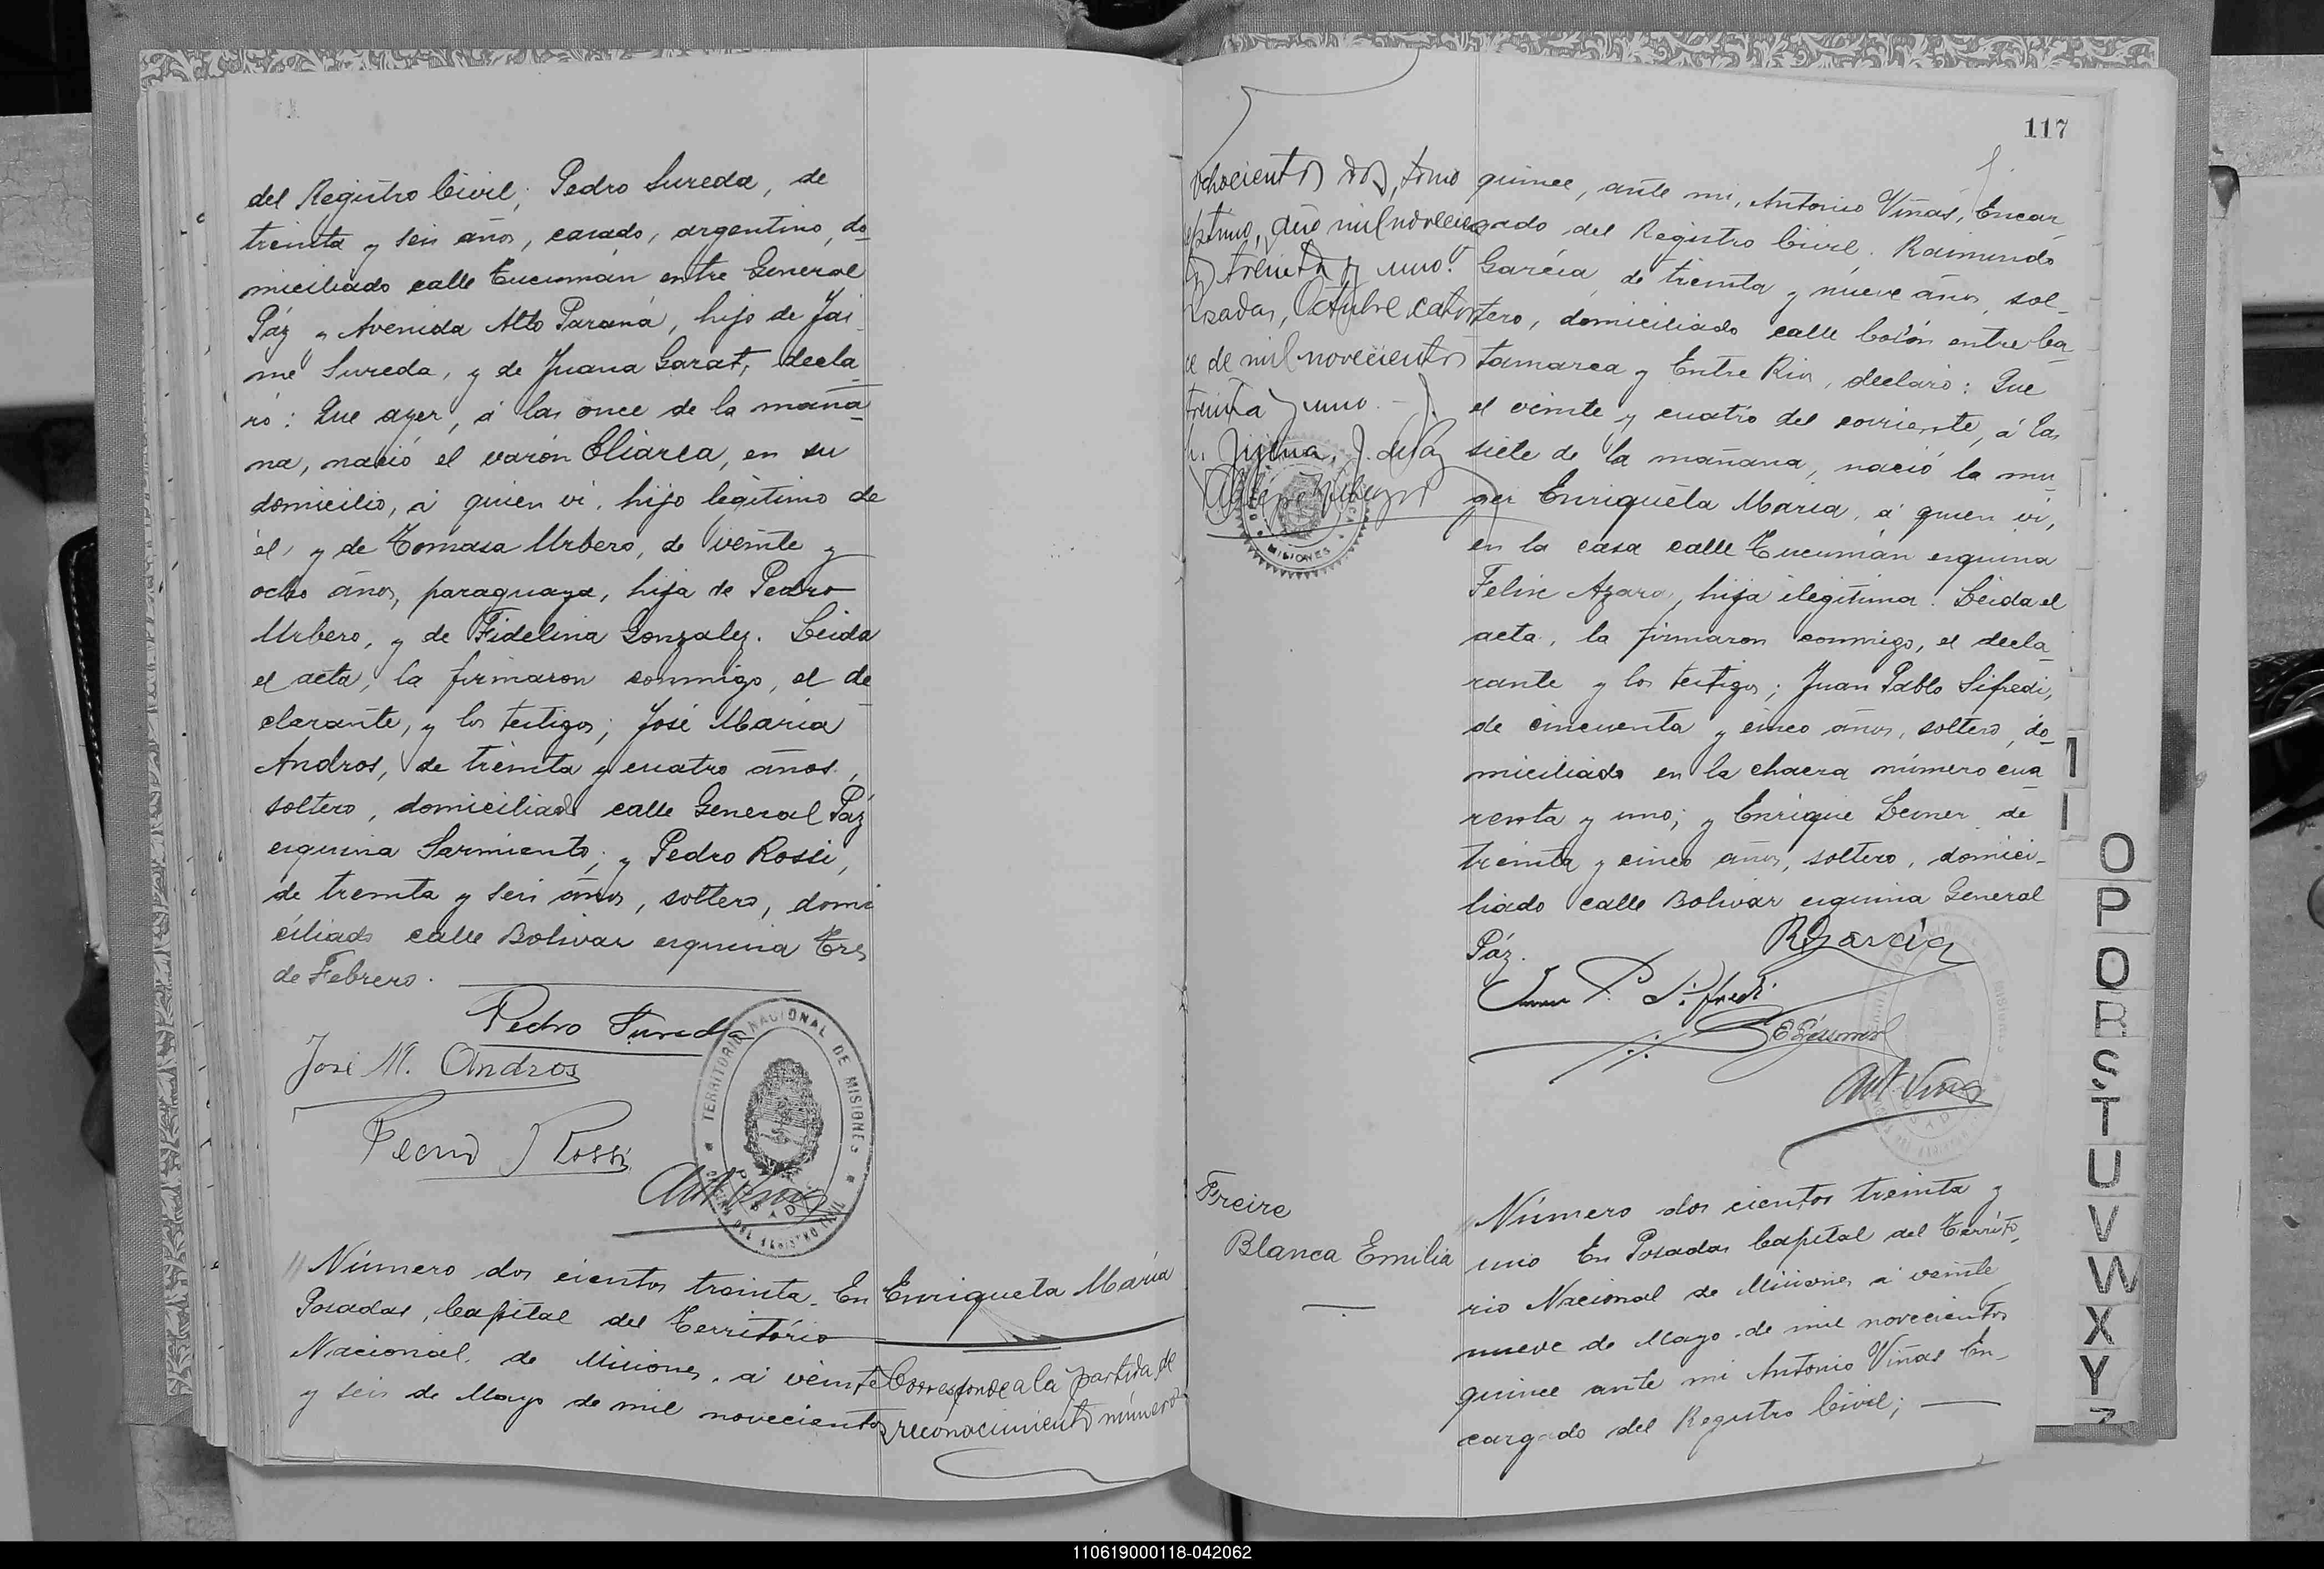 del Registro Civil; Pedro Sureda, de
treinta y seis años, casado, argentino, do-
miciliado calle Tucumán entre General
Páz y Avenida Alto Paraná, hijo de Jai-
me Sureda, y de Juana Garat, decla-
ró: Que ayer, á las once de la maña-
na, nació el varón Eliarca, en su
domicilio, á quien vi, hijo legitimo de
él, y de Tomasa Urbero, de veinte y
ocho años, paraguaya, hija de Pedro
Urbero, y de Fidelina Gonzalez. Leida
el acta, la firmaron conmigo, el de-
clarante, y los testigos; José Maria
Andros, de treinta y cuatro años,
soltero, domiciliado calle General Páz
esquina Sarmiento; y Pedro Rossi,
de treinta y seis años, soltero, domi
ciliado calle Bolivar esquina Tres
de Febrero.
Pedro Sureda
José M. Andros
Pedro J Rossi
Ant Viñas
TERRITORIO NACIONAL DE MISIONES
POSADAS
DEL REGISTRO CIVIL
Número dos cientos treinta. En
Posadas, Capital del Territorio
Nacional de Misiones, á veinte
y seis de Mayo de mil novecientos
Enriqueta Maria
Corresponde a la partida de
reconocimiento número
117
ochocientos dos, tomo
septimo, año mil novecien
tos treinta y uno.
Posadas, Octubre cator
ce de mil novecientos
treinta y uno.
MISIONES
quince, ante mi, Antonio Viñas, Encar
gado del Registro Civil. Raimundo
Garcia, de treinta y nueve años, sol-
tero, domiciliado calle Colón entre Ca-
tamarca y Entre Rios, declaró: Que
el veinte y cuatro del corriente, á las
siete de la mañana, nació la mu-
ger Enriqueta Maria, á quien vi,
en la casa calle Tucumán esquina
Felix Azara, hija ilegitima. Leida el
acta, la firmaron conmigo, el decla-
rante y los testigos; Juan Pablo Sifredi,
de cincuenta y cinco años, soltero, do-
miciliado en la chacra número cua
renta y uno; y Enrique Leiner de
treinta y cinco años, soltero, domici-
liado calle Bolivar esquina General
Páz.
R Garcia
Juan P. Sifredi
Ant Viñas
Freire
Blanca Emilia
Número dos cientos treinta y
uno En Posadas Capital del Territo-
rio Nacional de Misiones á veinte
nueve de Mayo de mil novecientos
quince ante mi Antonio Viñas En-
cargado del Registro Civil;
O
P
Q
R
S
T
U
V
W
X
Y
Z
110619000118-042062